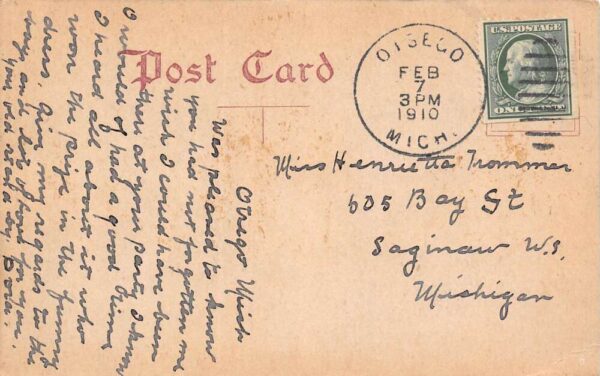 Post Card
OTSEGO
FEB
7
3PM
1910
MICH.
U.S. POSTAGE
Miss Henrietta Trommer
605 Bay St
Saginaw W.S.
Michigan
Otsego Mich
Was pleased to know
you had not forgotten me
wish I could have been
then at your party, I know
I would of had a good time,
I heard all about it who
won the prize in the funny
dress. Give my regards to the
boys and lots of love for you.
you old